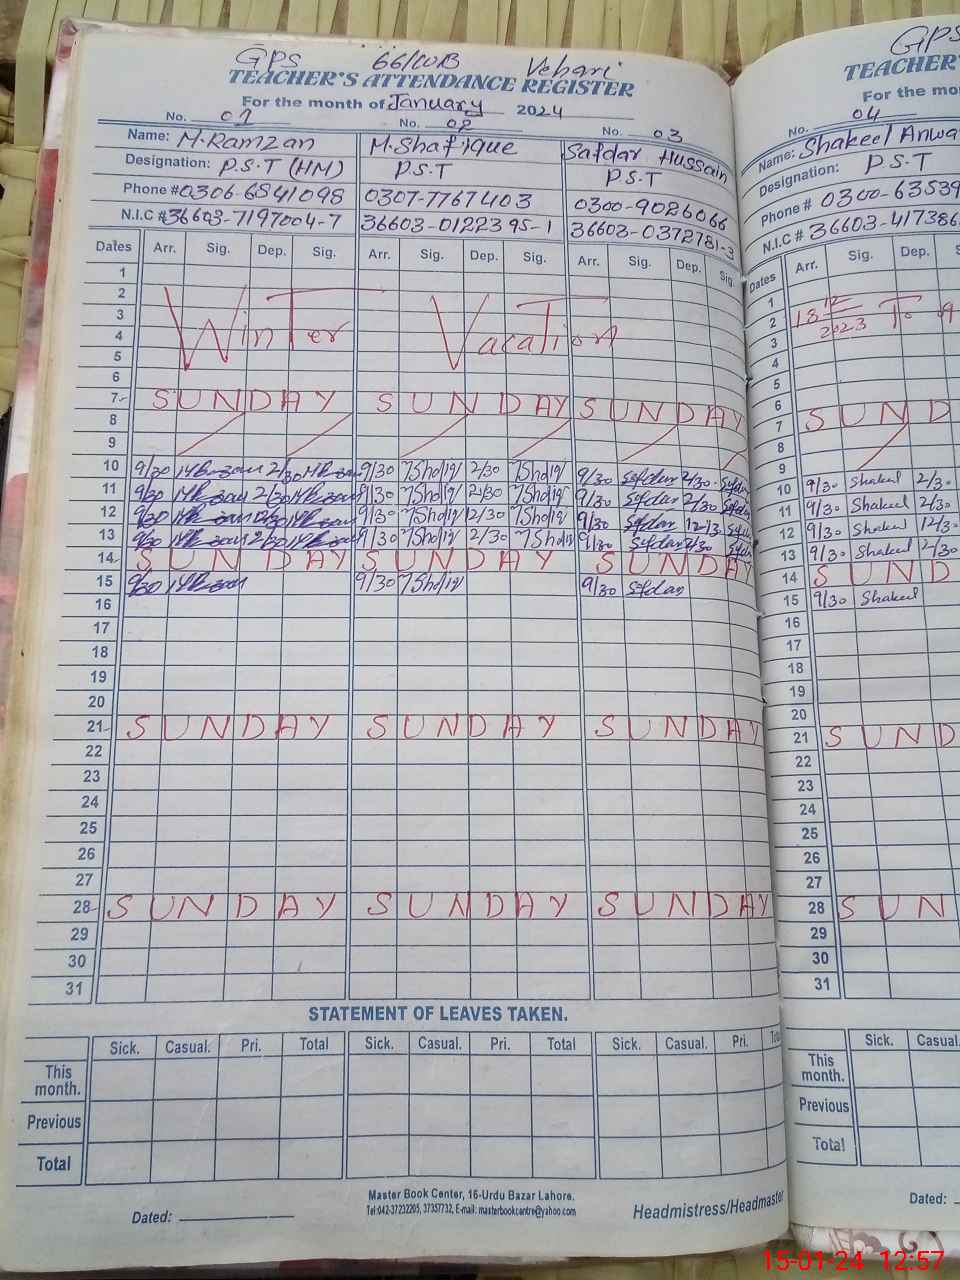 GPS 66/WB Vehari
TEACHER'S ATTENDANCE REGISTER
For the month of January 2024
No. 01 No. 02 No. 03
Name: M.Ramzan M.Shafique Safdar Hussain
Designation: P.S.T (HM) P.S.T P.S.T
Phone # 0306-6541098 0307-7767403 0300-9026066
N.I.C # 36603-7197004-7 36603-0122395-1 36603-0372781-3
Dates Arr. Sig. Dep. Sig. Arr. Sig. Dep. Sig. Arr. Sig. Dep. Sig.
1
2
3
4 Winter Vacation
5
6
7 SUNDAY SUNDAY SUNDAY
8
9
10 9/30 2/30 9/30 2/30 9/30 Safdar 2/30 Safdar
11 9/30 2/30 9/30 2/30 9/30 Safdar 2/30 Safdar
12 9/30 9/30 12/30 9/30 Safdar Safdar
13 9/30 2/30 9/30 2/30 9/30 Safdar 2/30 Safdar
14 SUNDAY SUNDAY SUNDAY
15 9/30 9/30 9/30 Safdar
16
17
18
19
20
21 SUNDAY SUNDAY SUNDAY
22
23
24
25
26
27
28 SUNDAY SUNDAY SUNDAY
29
30
31
STATEMENT OF LEAVES TAKEN.
Sick. Casual. Pri. Total Sick. Casual. Pri. Total Sick. Casual. Pri. Total
This month.
Previous
Total
Master Book Center, 16-Urdu Bazar Lahore.
Tel:042-37232205, 37357732, E-mail: masterbookcantre@yahoo.com
Dated: Headmistress/Headmaster
GPS
TEACHER'
For the mo
No. 04
Name: Shakeel Anwa
Designation: P.S.T
Phone # 0300-63539
N.I.C # 36603-417386
Dates Arr. Sig. Dep. S
1
2 18 12/2023 To
3
4
5
6 SUND
7
8
9
10 9/30 Shakeel 2/30
11 9/30 Shakeel 2/30
12 9/30 Shakeel 12/30
13 9/30 Shakeel 2/30
14 SUND
15 9/30 Shakeel
16
17
18
19
20
21 SUND
22
23
24
25
26
27
28 SUN
29
30
31
Sick. Casual.
This month.
Previous
Total
Dated:
15-01-24 12:57